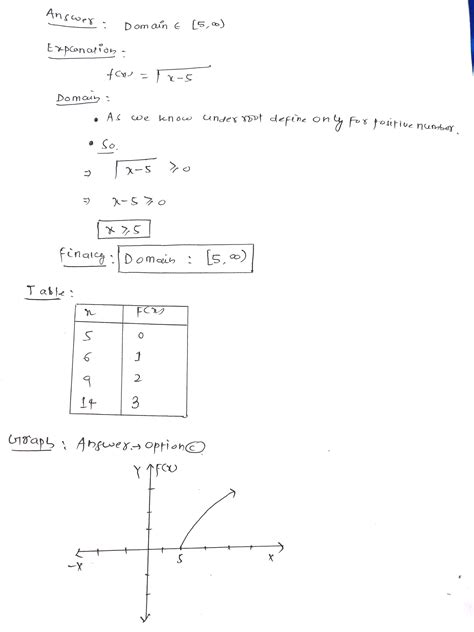 Answer : Domain ∈ [5,∞)
Expanation :
f(x) = √x-5
Domain :
• As we know under root define only for positive number.
• So.
⇒ √x-5 ⩾ 0
⇒ x-5 ⩾ 0
x ⩾ 5
Finaly : Domain : [5,∞)
Table :
x F(x)
5 0
6 1
9 2
14 3
Graph : Answer → option ⓒ
Y F(x)
-X 5 X